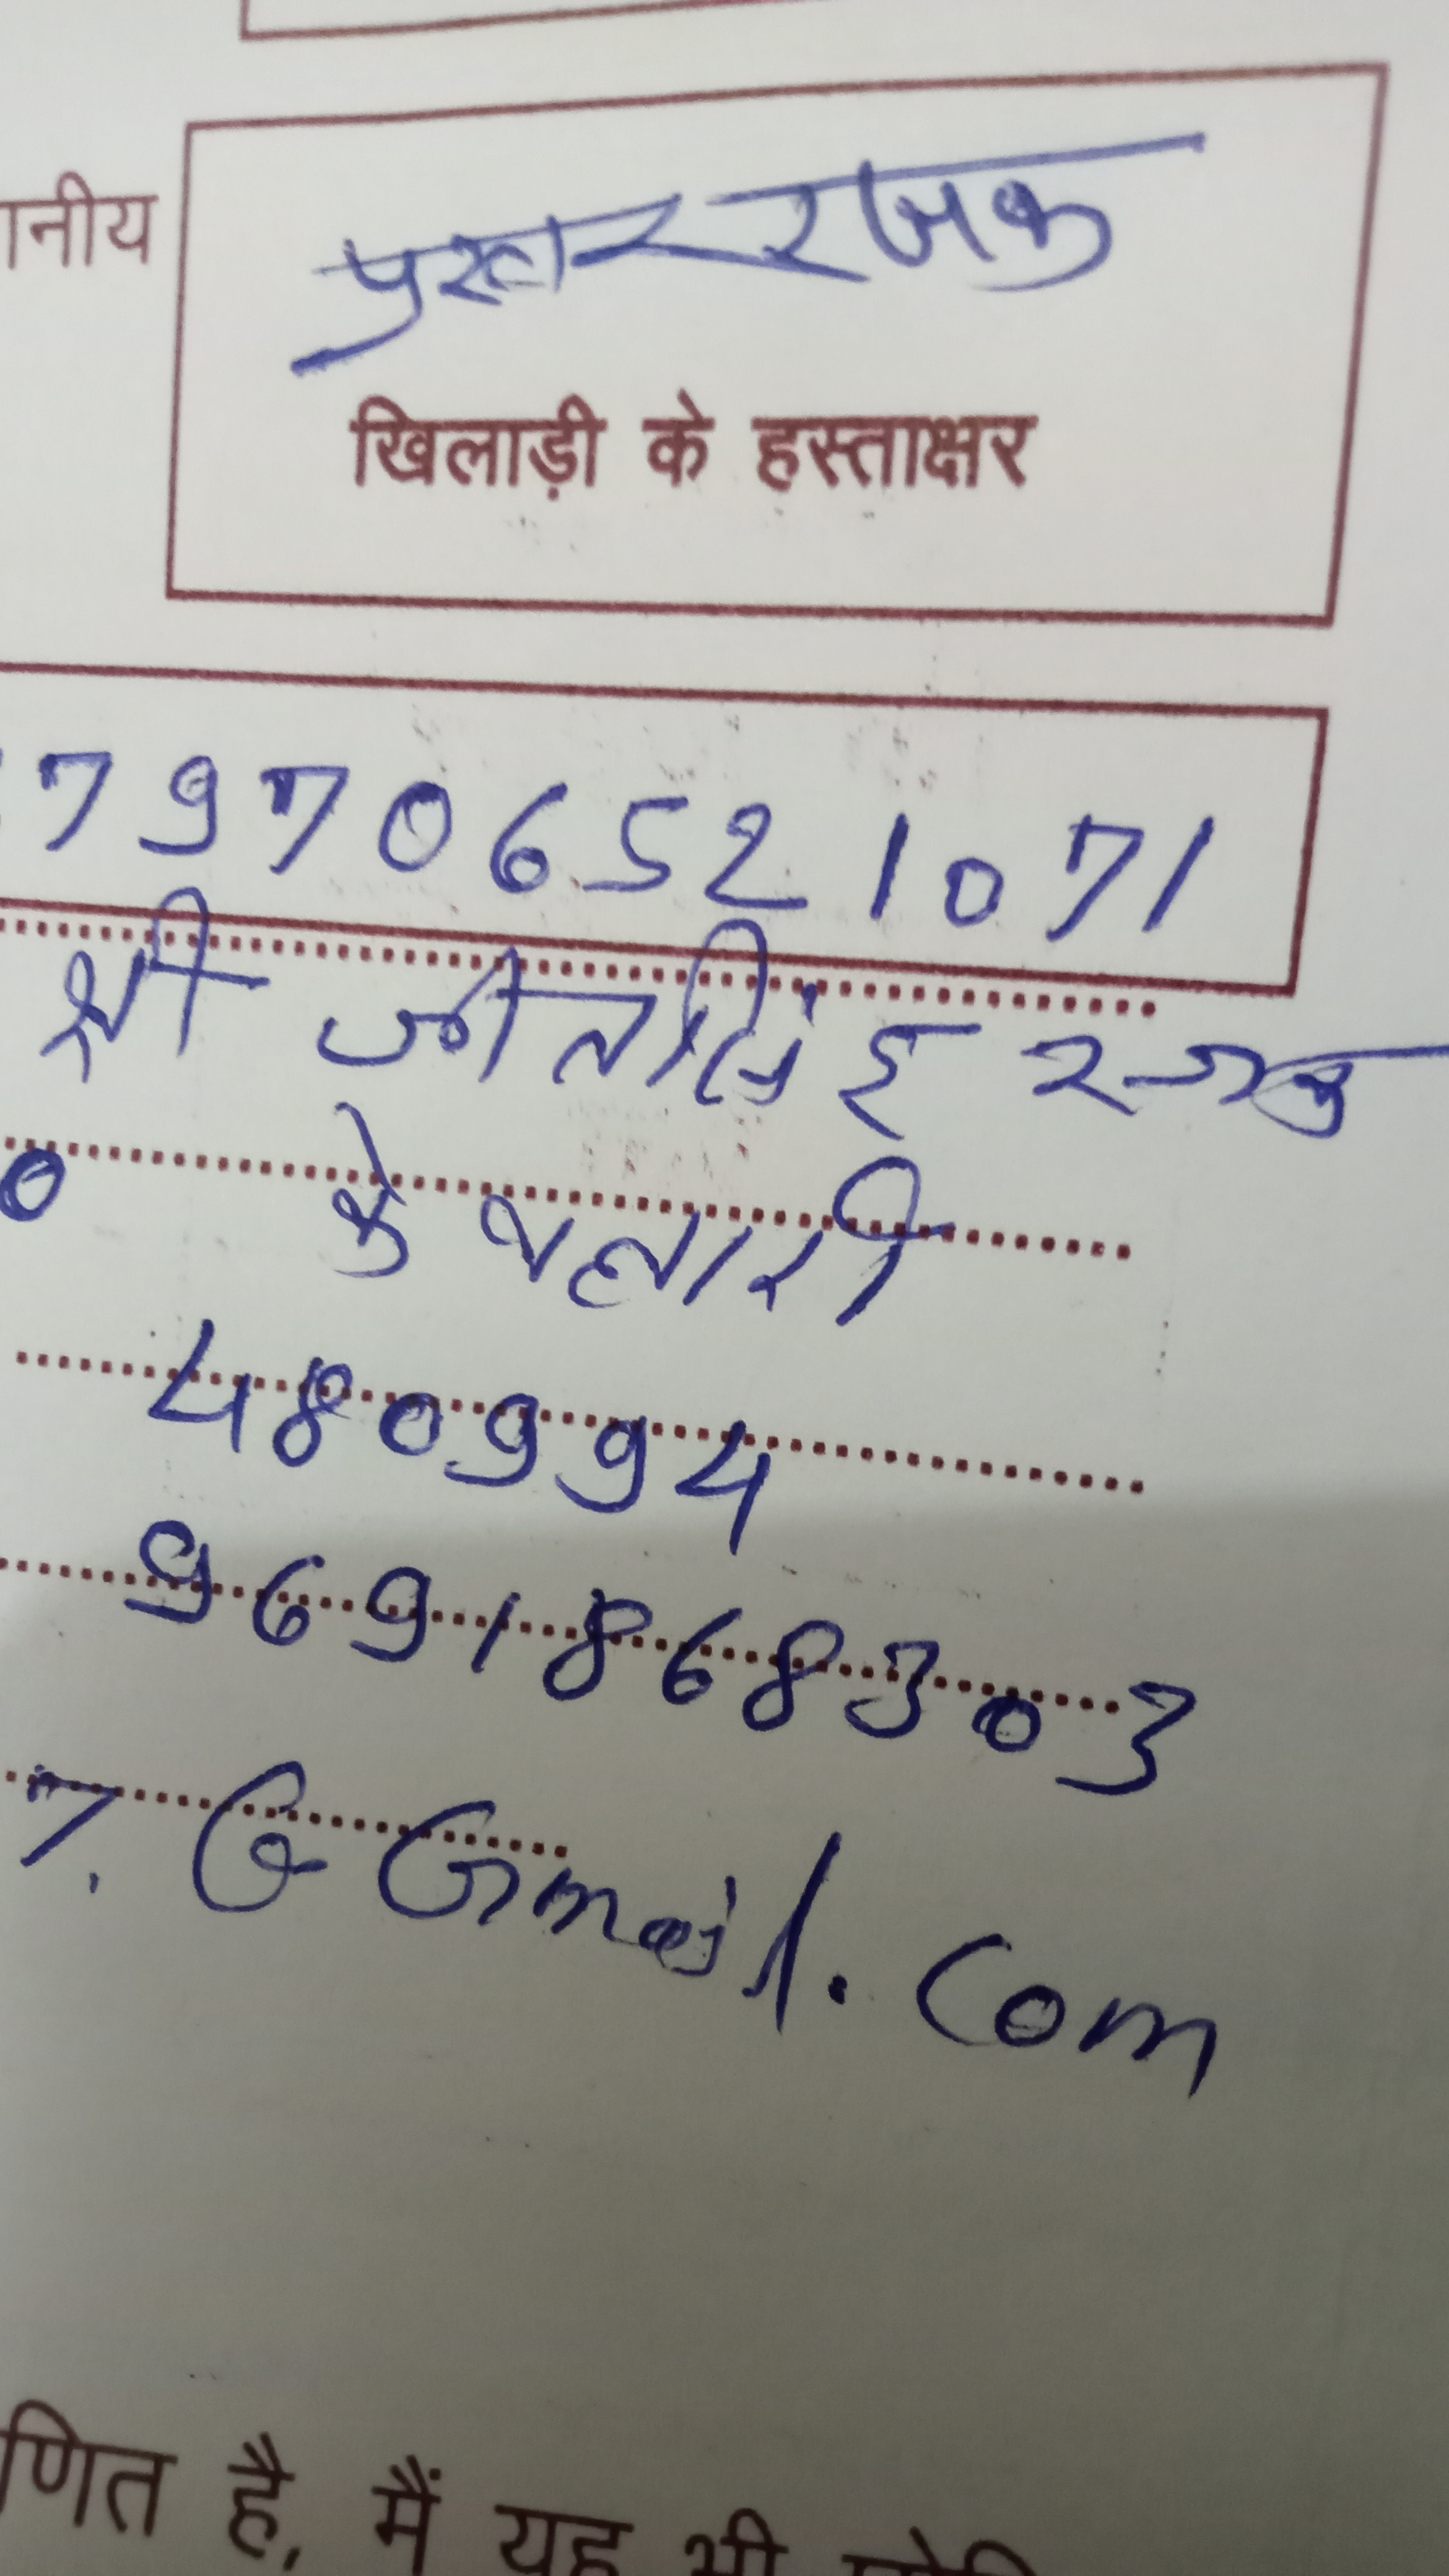 ानीय
रजक
खिलाड़ी के हस्ताक्षर
79706521071
श्री जीतसिंह रजक
0 केवलारी
480994
9691868303
7.@Gmail.com
णित है, मैं यह भी